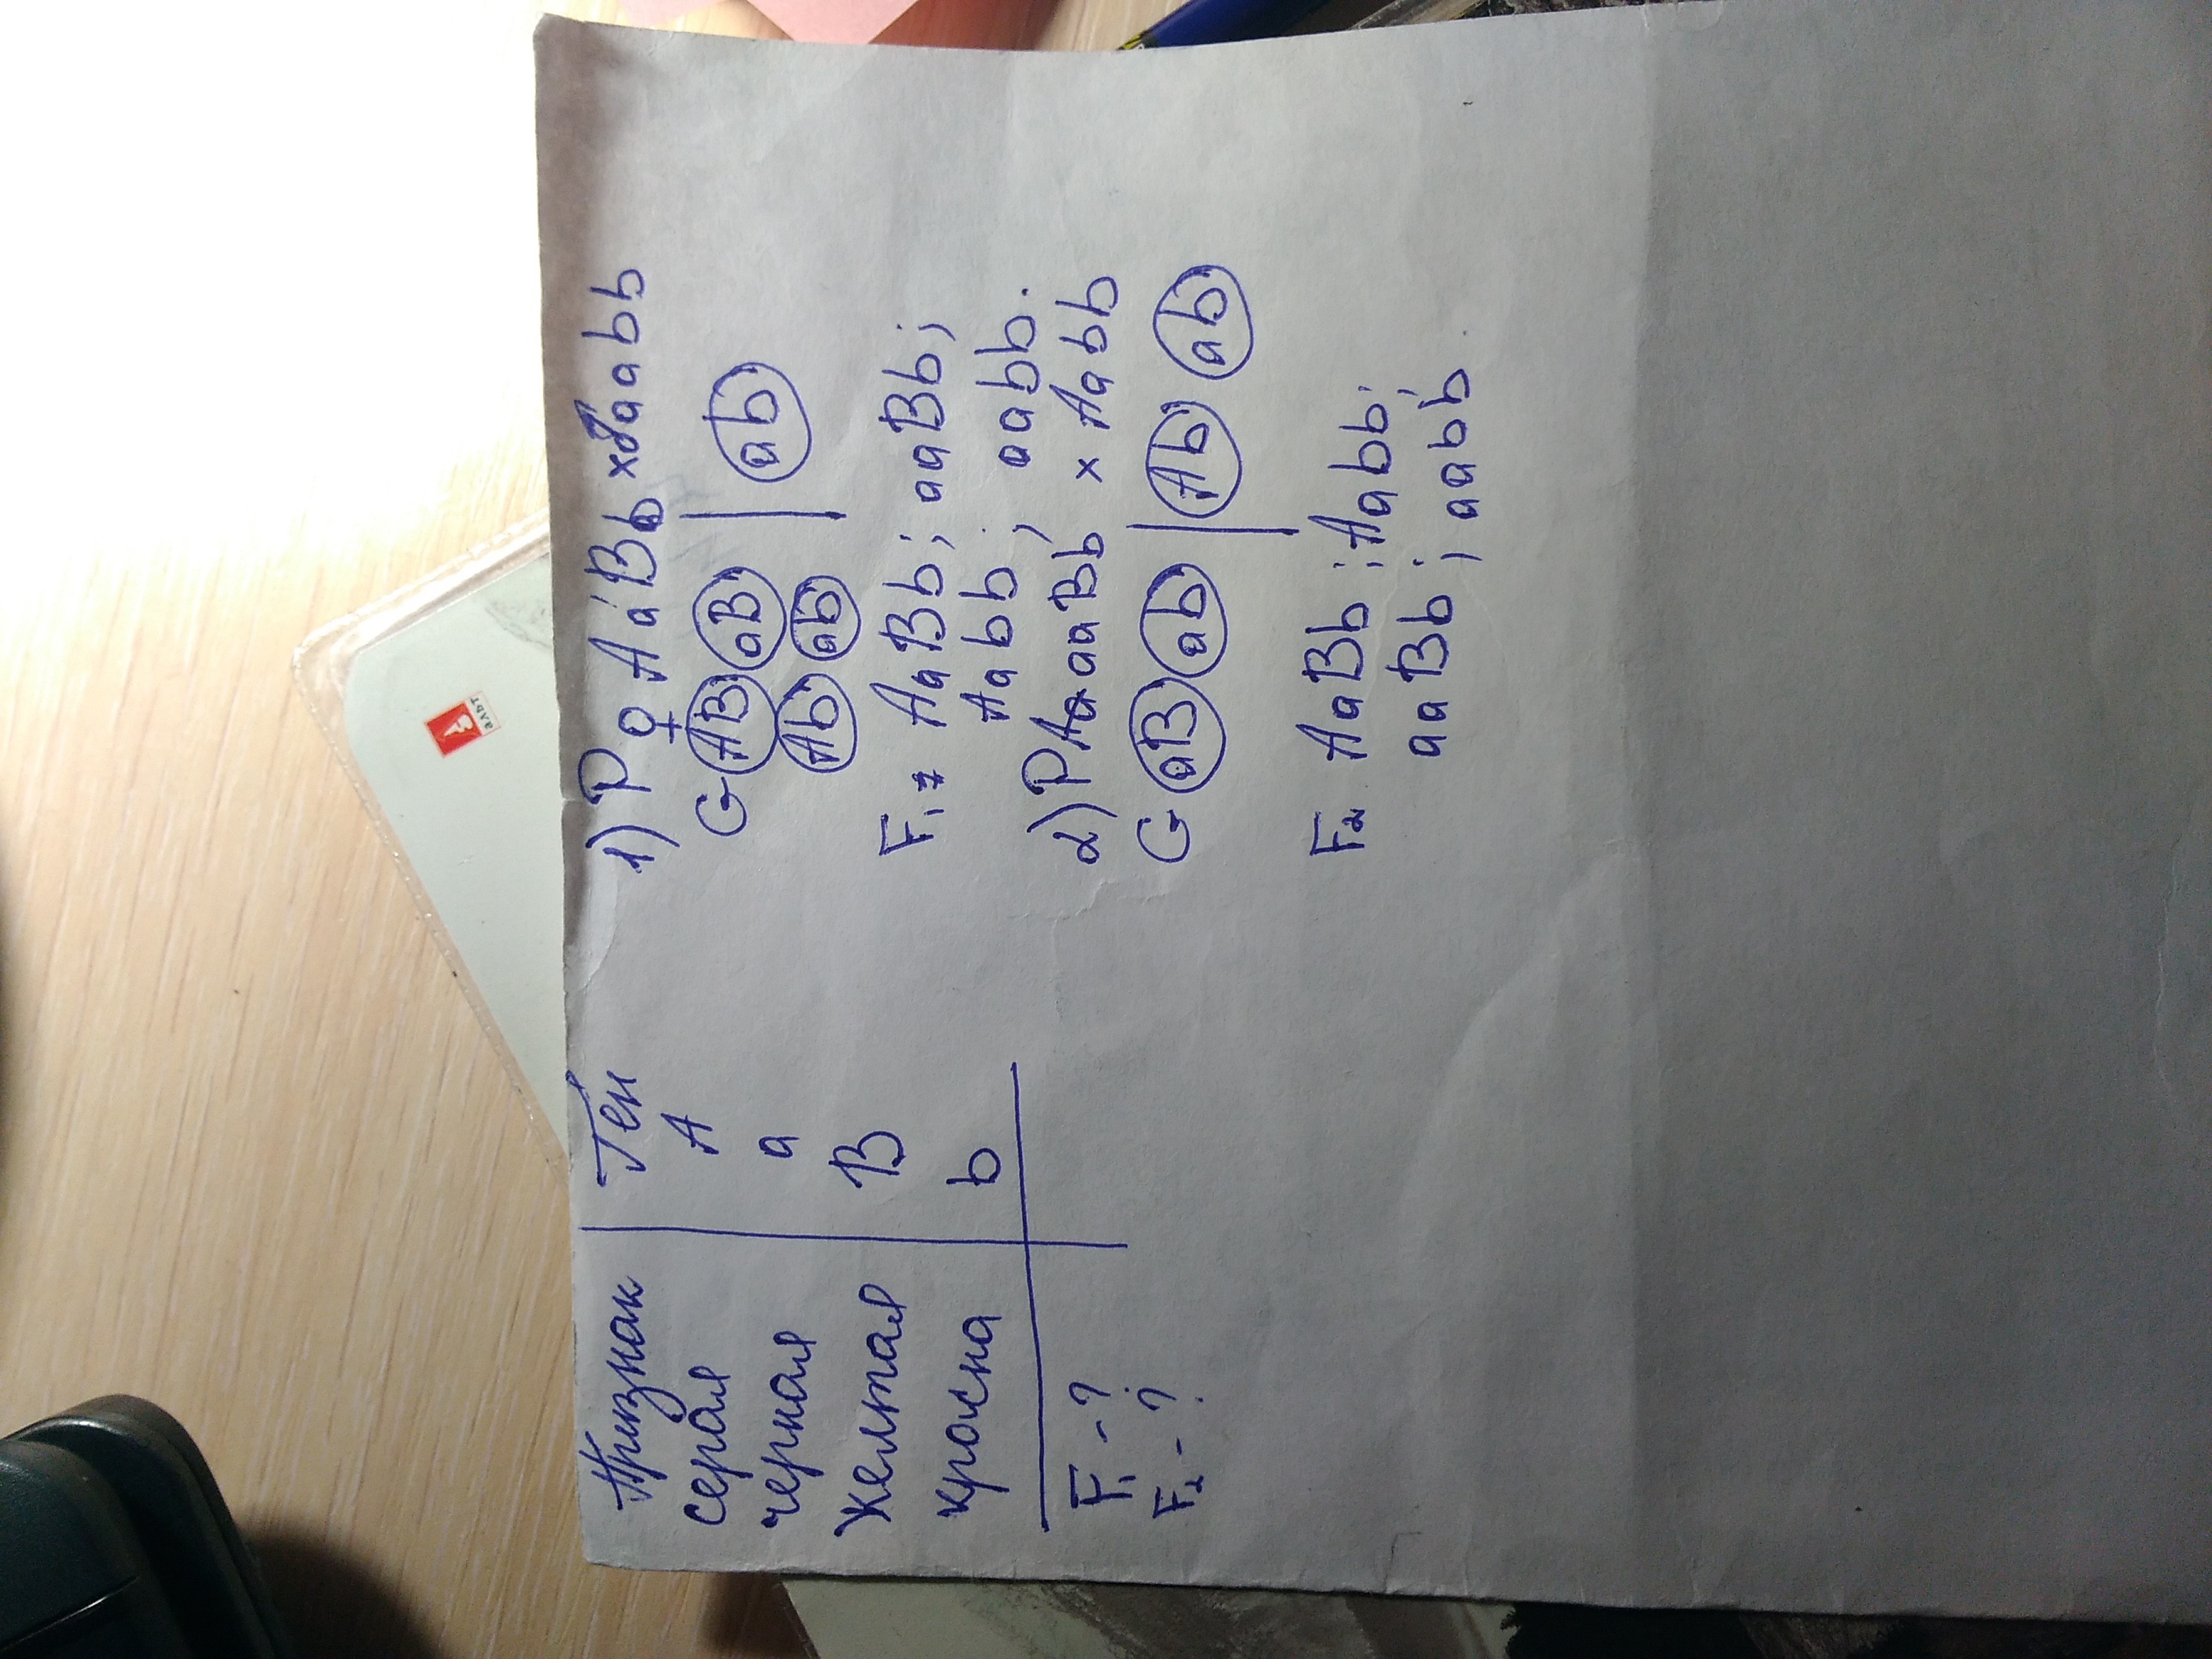 Признак | Ген
серая A
черная a
желтая B
красна b
F₁ - ?
F₂ - ?
1) P ♀ AaBb x ♂ aabb
G AB aB | ab
Ab ab
F₁ = AaBb; aaBb;
Aabb; aabb.
2) P aaBb x Aabb
G aB ab | Ab ab
F₂ AaBb; Aabb;
aaBb; aabb.
альт